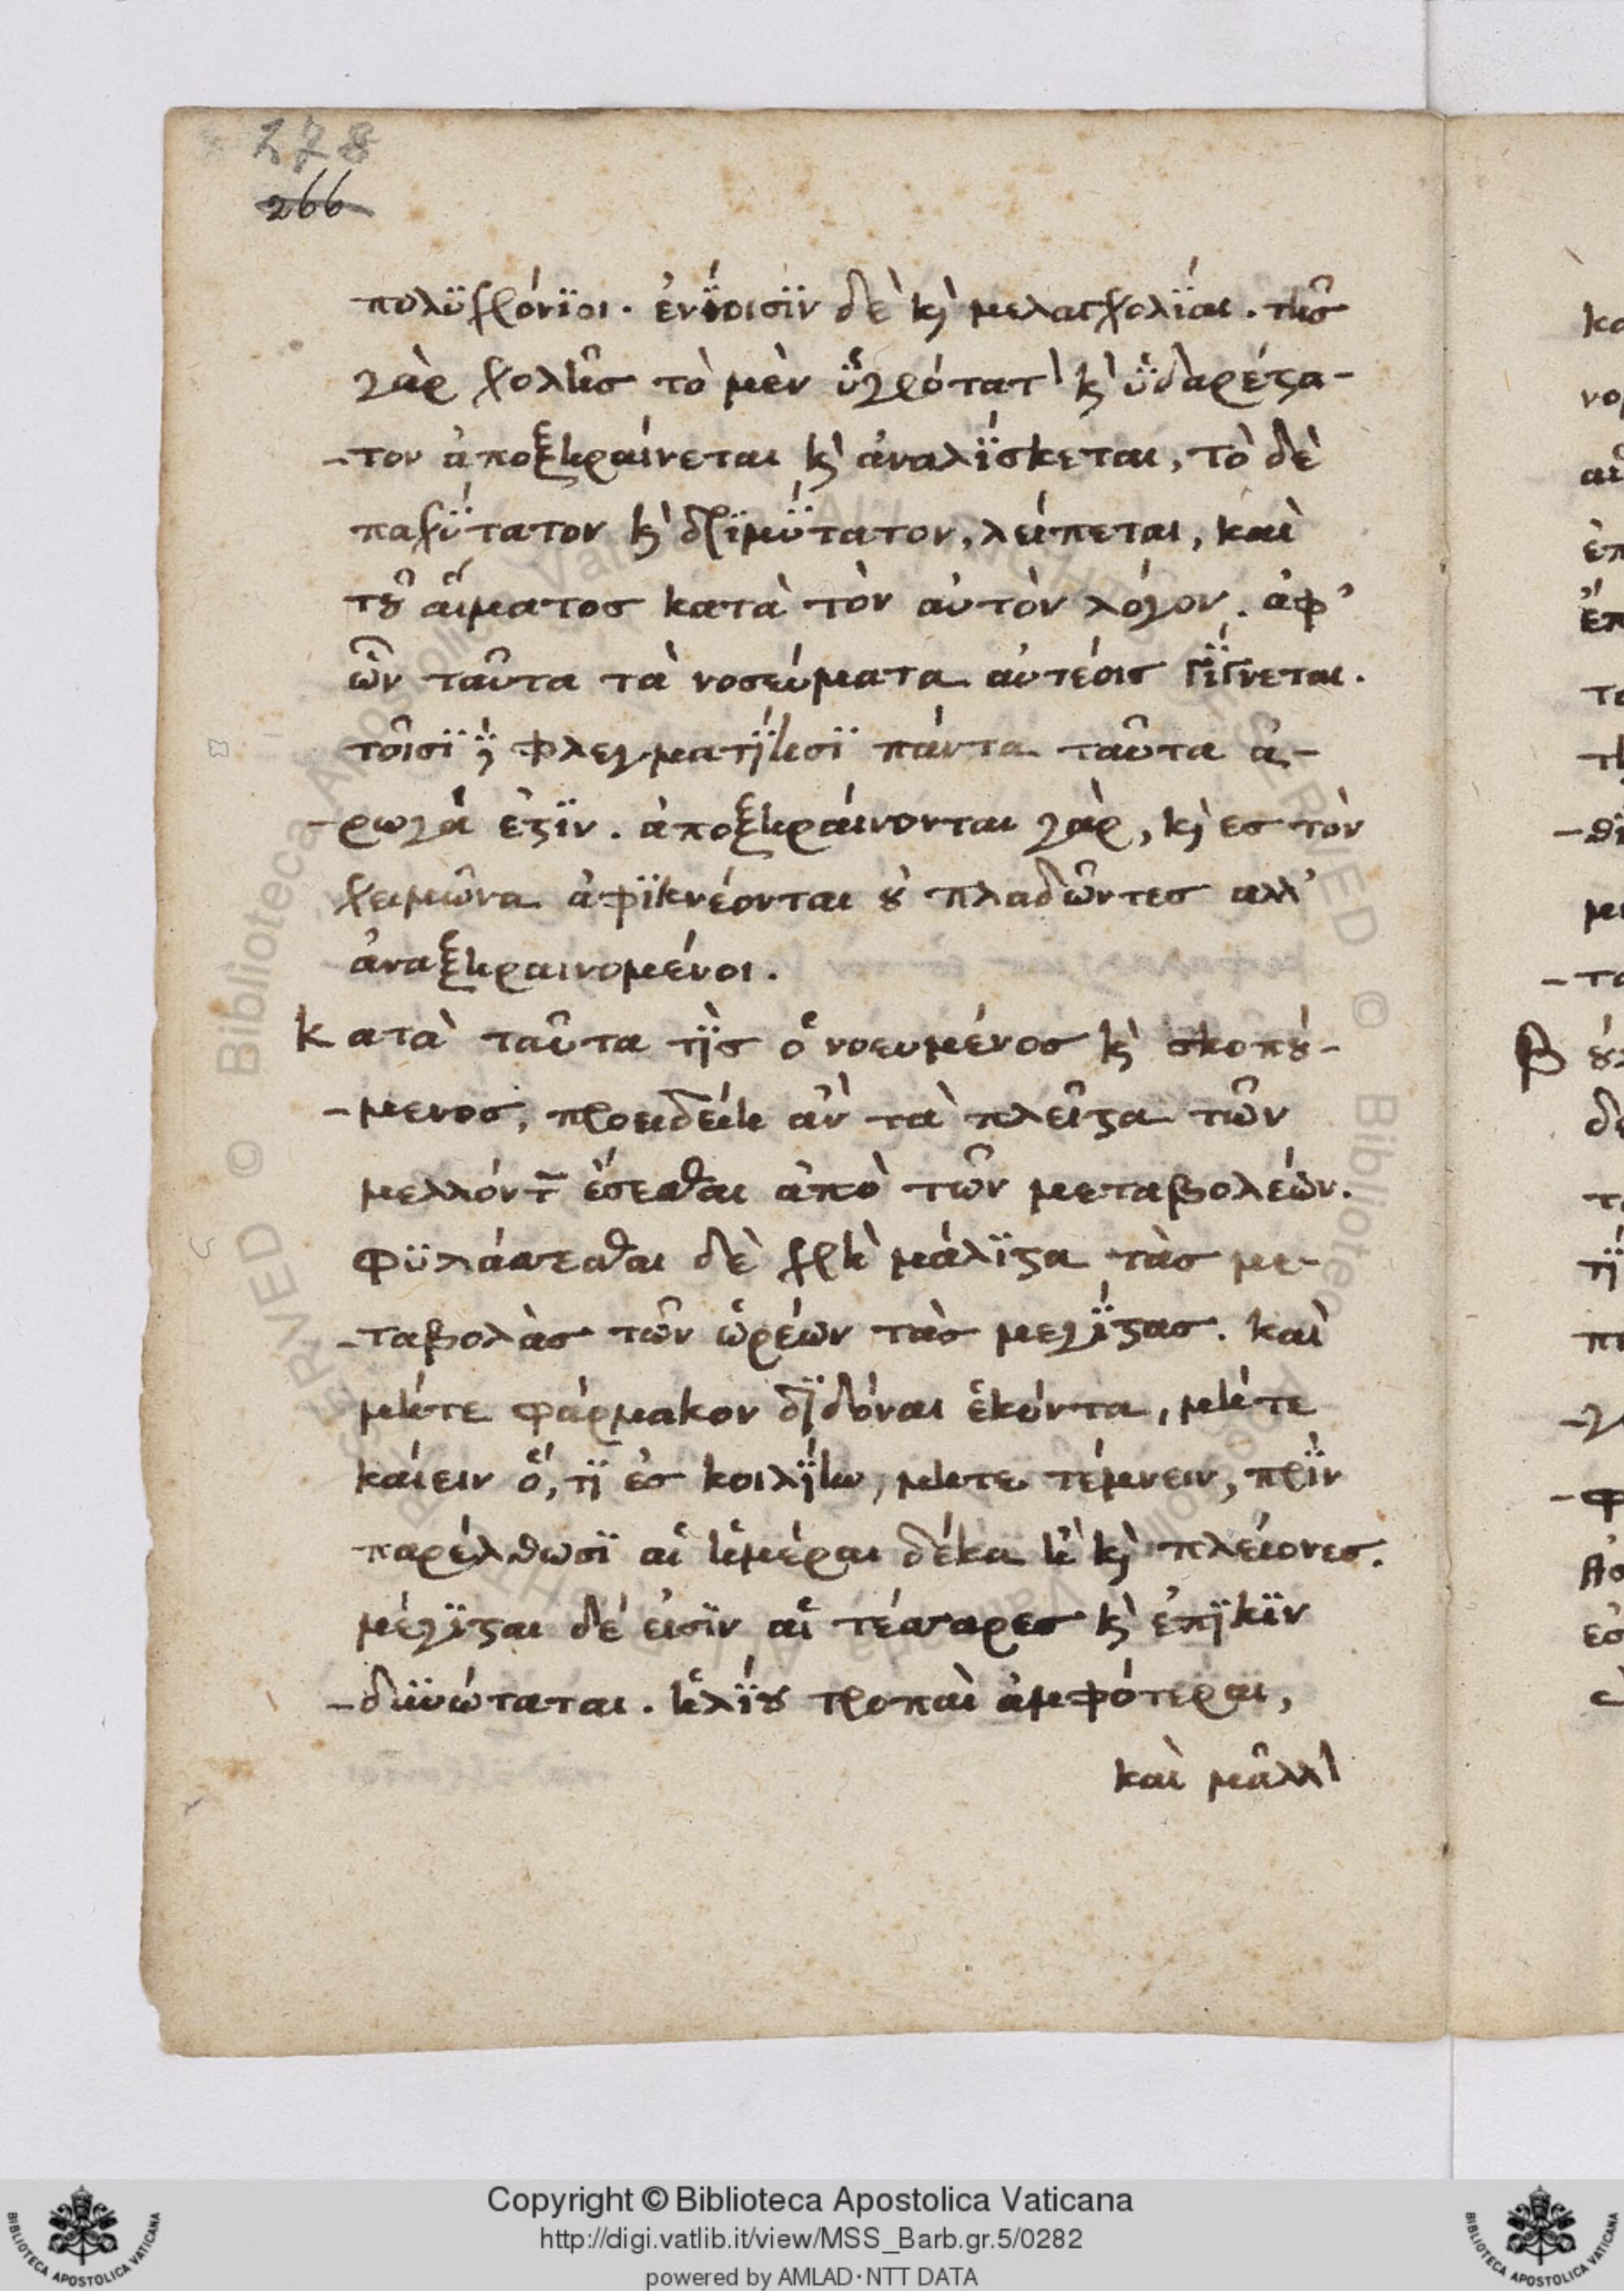 278
266
πολϋχρόνϊοι. ἐνΐοισϊν δὲ κ̀ μελαγχολΐαι. τῆσ
γὰρ χολῆσ τὸ μὲν ὑγρότατ̀ κ̀ ὑδαρέϛα-
-τον ἀποξηραίνεται κ̀ ἀναλΐσκεται, τὸ δὲ
παχΰτατον κ̀ δρϊμΰτατον, λείπεται, καὶ
τȣ͂ αἵματοσ κατὰ τὸν αὐτὸν λόγον. ἀφ'
ὧν ταῦτα τὰ νοσεύματα αὐτέοισ γΐγνεται.
τοῖσϊ δὲ φλεγματΐησϊ πάντα ταῦτα ἀ-
-ρωγά ἐϛϊν. ἀποξηράινονται γὰρ, κ̀ εσ τὸν
χειμῶνα ἀφϊκνέονται ȣ̓ πλαδῶντεσ αλλ'
ἀναξηραινομένοι.
Κατὰ ταῦτα τῒσ ὁ νοευμένοσ κ̀ σκοπȣ́-
-μενοσ, προειδείη ἂν τὰ πλεῖϛα τῶν
μελλόντ͂ ἔσεσθαι ἀπὸ τῶν μεταβολέων.
Φϋλάσσεσθαι δὲ χρὴ μάλϊϛα τὰσ με-
-ταβολὰσ τῶν ὡρέων τὰσ μεγΐϛασ. καὶ
μήτε φάρμακον δϊδόναι ἑκόντα, μήτε
καίειν ὅ, τϊ ἐσ κοιλΐην, μητε τέμνειν, πρῒν
παρέλθωσϊ αἱ ἡμέραι δέκα ἢ κ̀ πλείονεσ.
μέγϊϛαι δέ εισϊν αἱ τέσσαρεσ κ̀ ἐπϊκϊν
-δϋνώταται. ἡλΐȣ τροπαὶ ἀμφότεραι,
καὶ μᾶλλ̀
Copyright © Biblioteca Apostolica Vaticana
http://digi.vatlib.it/view/MSS_Barb.gr.5/0282
powered by AMLAD·NTT DATA